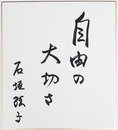 自由の
大切さ
石垣弦子